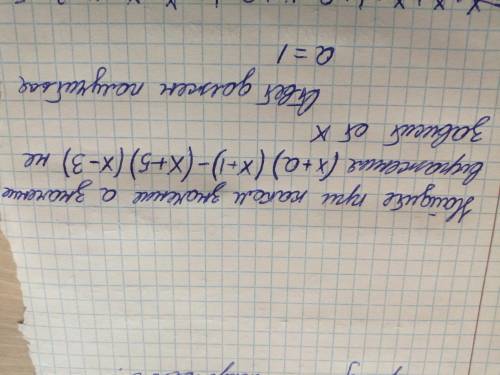 Найдите при каком значение а значение
выражения (x+a)(x+1)-(x+5)(x-3) не
зависит от x
Ответ должен получаться
a=1